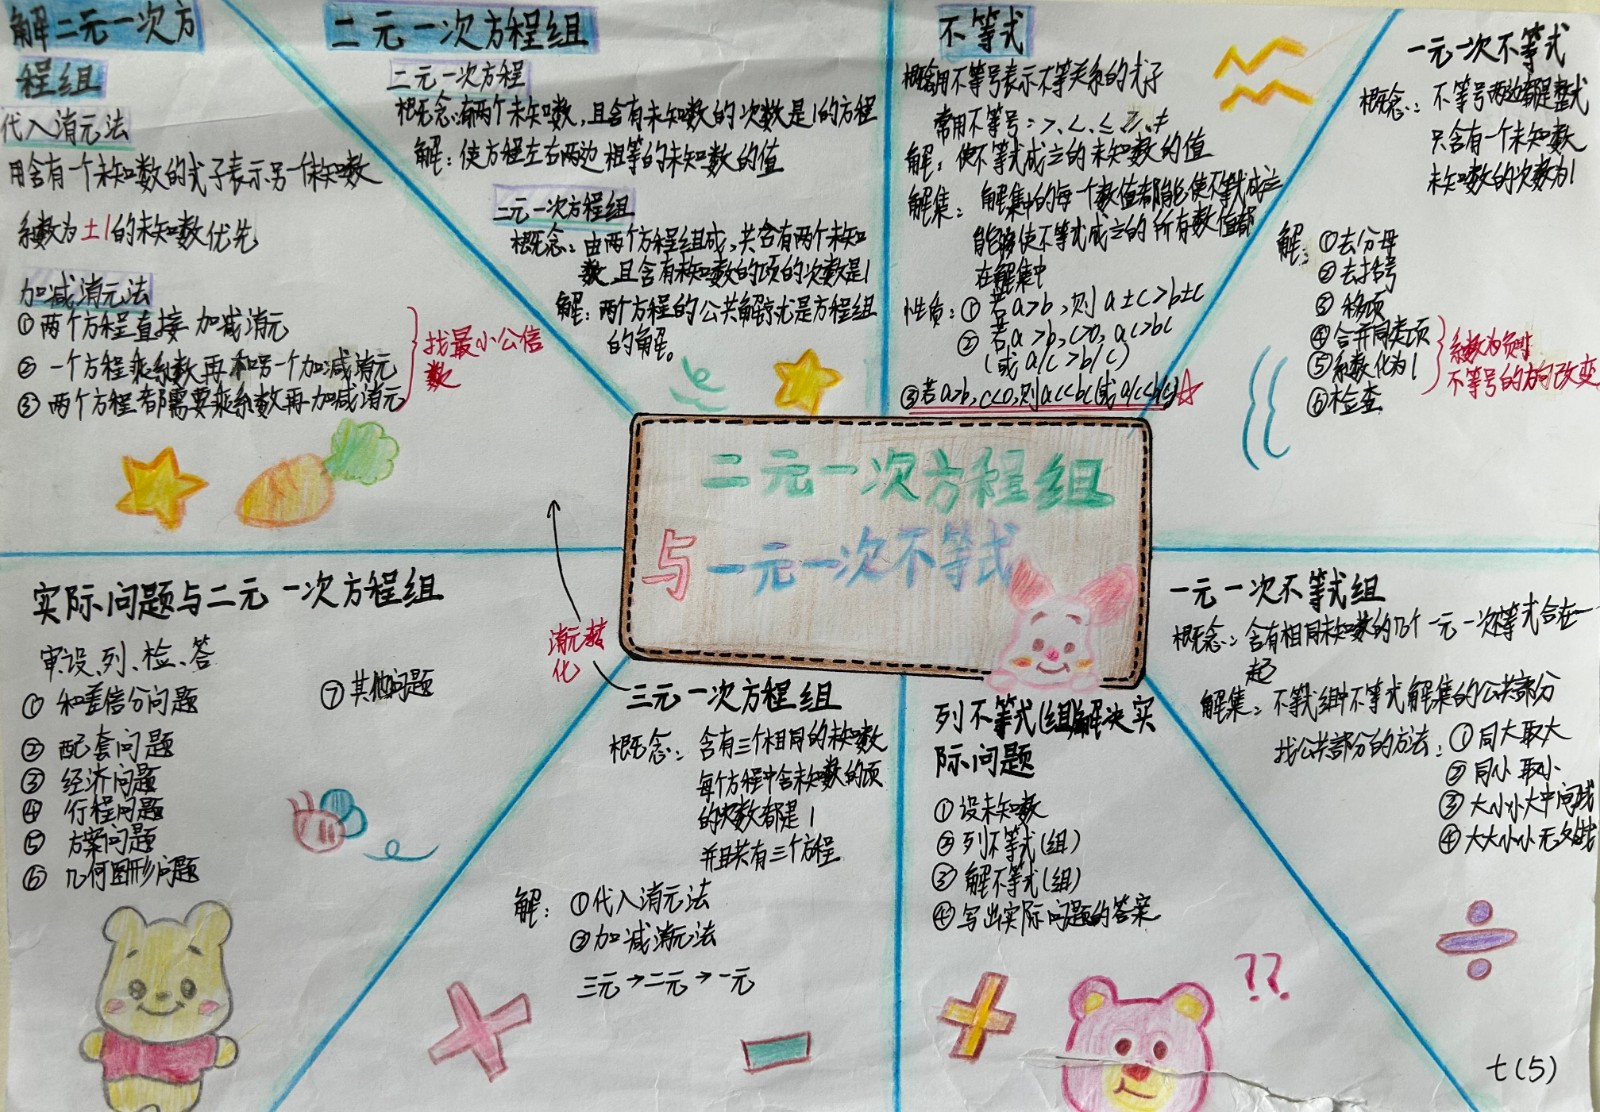 解二元一次方
程组
代入消元法
用含有一个未知数的式子表示另一个未知数
系数为±1的未知数优先
加减消元法
①两个方程直接加减消元
②一个方程乘系数再和另一个加减消元
③两个方程都需要乘系数再加减消元
找最小公倍
数
二元一次方程组
二元一次方程
概念:有两个未知数,且含有未知数的次数是1的方程
解:使方程左右两边相等的未知数的值
二元一次方程组
概念:由两个方程组成,共含有两个未知
数,且含有未知数的项的次数是1
解:两个方程的公共解就是方程组
的解。
不等式
概念用不等号表示不等关系的式子
常用不等号:>、<、≤、≥、≠
解:使不等式成立的未知数的值
解集:解集中的每一个数值都能使不等式成立
能够使不等式成立的所有数值都
在解集中
性质:①若a>b,则a±c>b±c
②若a>b,c>0,ac>bc
(或a/c>b/c)
③若a>b,c<0,则ac<bc(或a/c<b/c)
一元一次不等式
概念:不等号两边都是整式
只含有一个未知数
未知数的次数为1
解:①去分母
②去括号
③移项
④合并同类项
⑤系数化为1
⑥检查
系数为负时
不等号的方向改变
二元一次方程组
与一元一次不等式
实际问题与二元一次方程组
审、设、列、检、答
①和差倍分问题
②配套问题
③经济问题
④行程问题
⑤方案问题
⑥几何图形问题
⑦其他问题
消元转
化
三元一次方程组
概念:含有三个相同的未知数
每个方程中含未知数的项
的次数都是1
并且共有三个方程
解:①代入消元法
②加减消元法
三元→二元→一元
列不等式(组)解决实
际问题
①设未知数
②列不等式(组)
③解不等式(组)
④写出实际问题的答案
??
一元一次不等式组
概念:含有相同未知数的几个一元一次不等式合在一
起
解集:不等式组中不等式解集的公共部分
找公共部分的方法:①同大取大
②同小取小
③大小小大中间找
④大大小小无处找
七(5)